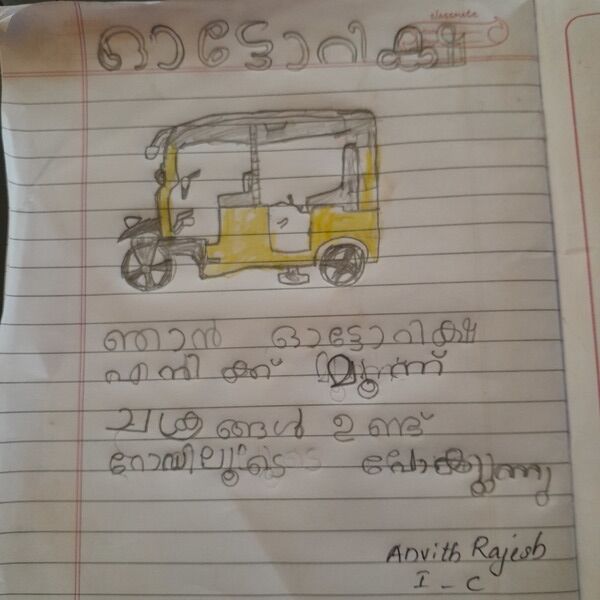 classmate
ഓട്ടോറിക്ഷ
ഞാൻ ഓട്ടോറിക്ഷ
എനിക്ക് മൂന്ന്
ചക്രങ്ങൾ ഉണ്ട്
റോഡിലൂടെ പോകുന്നു
Anvith Rajesh
I - C